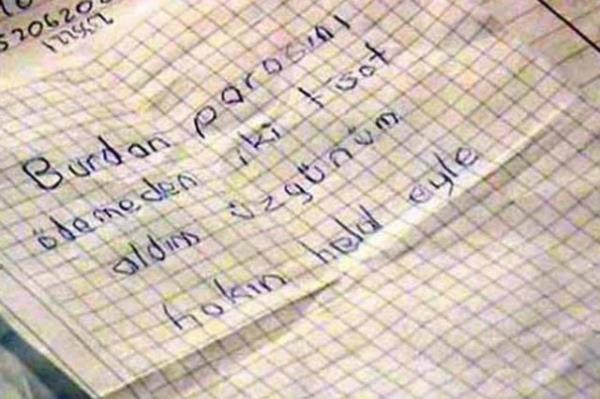 5206206
Burdan parasını
ödemeden iki tisot
aldım üzgünüm
hakın helal eyle